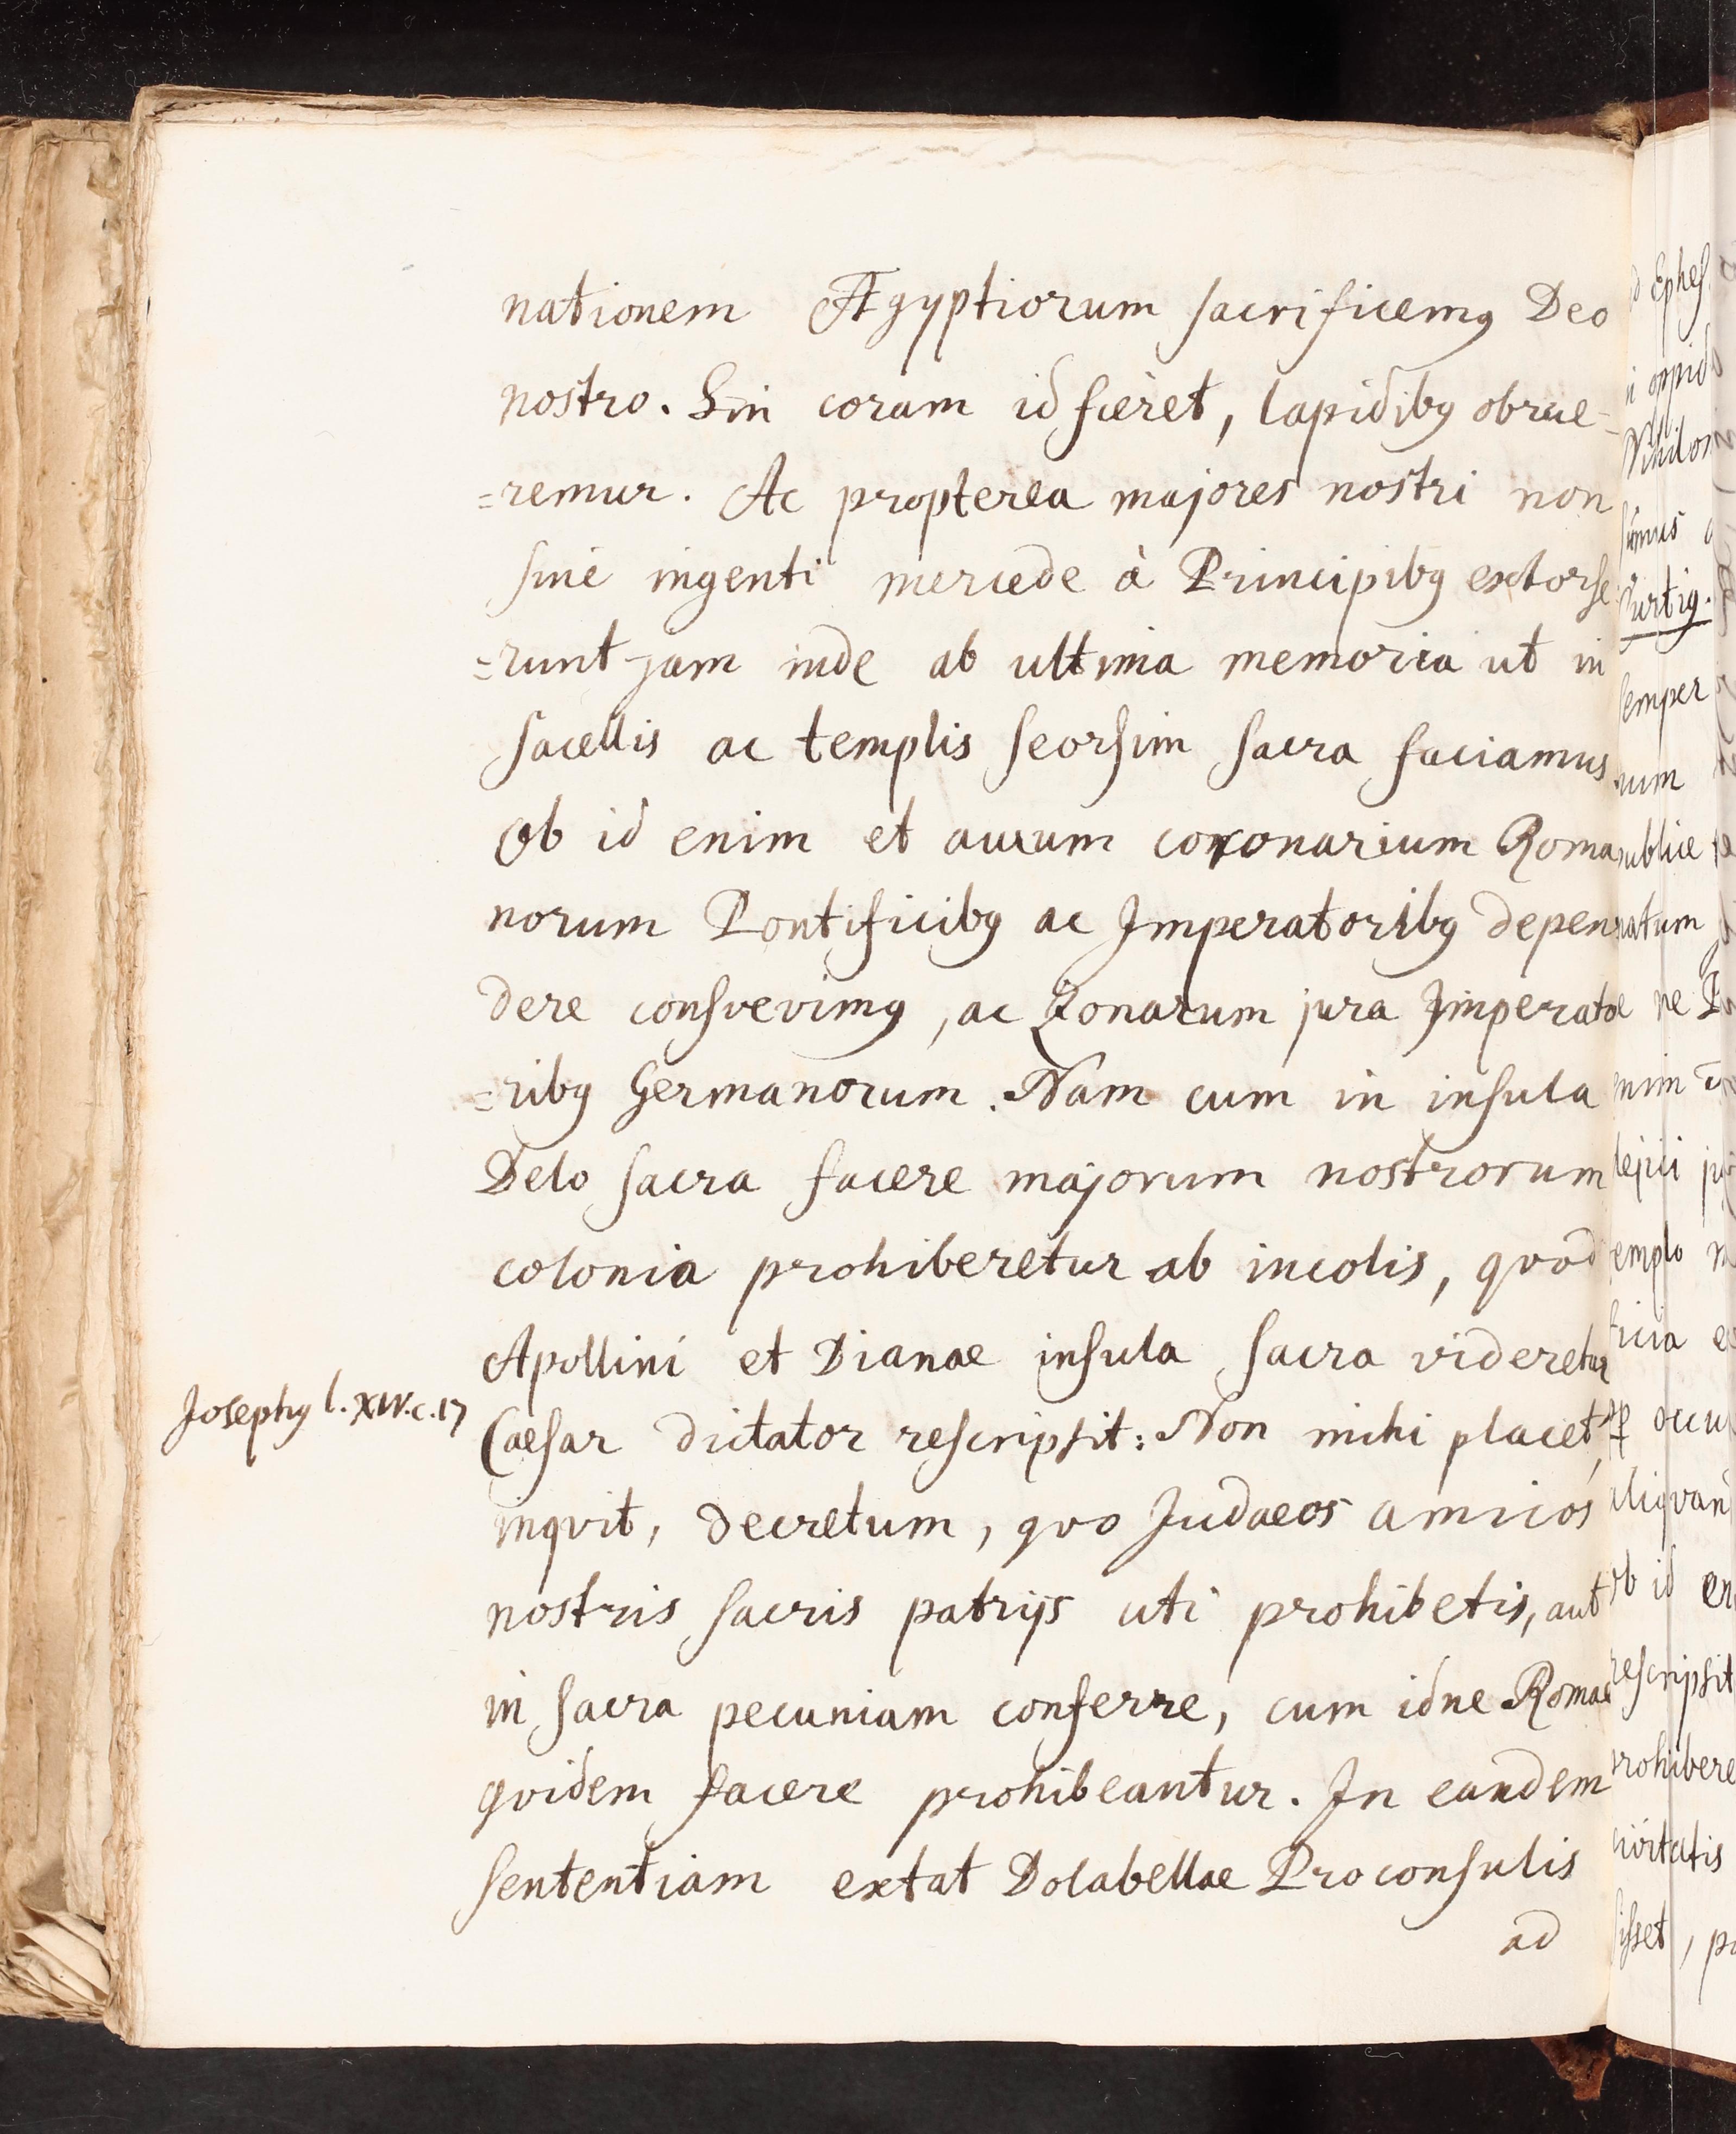 nationem Ægyptiorum sacrificemꝰ Deo
nostro. Sin coram id fieret, lapidibꝰ obrue-
=remur. Ac propterea majores nostri non
sine ingenti mercede à Principibꝰ extorse
=runt jam inde ab ultima memoria ut in
sacellis ac templis seorsim sacra faciamus
Ob id enim et aurum coronarium Roma
norum Pontificibꝰ ac Imperatoribꝰ depen
dere consvevimꝰ, ac Zonarum jura Imperato
=ribꝰ Germanorum. Nam cum in insula
Delo sacra facere majorum nostrorum
colonia prohiberetur ab incolis, qvod
Apollini et Dianae insula sacra videretur
Josephꝰ l. XIV. c. 17
Caesar dictator rescripsit: Non mihi placet,
inqvit, decretum, qvo Judaeos amicos
nostris sacris patrijs uti prohibetis, aut
in sacra pecuniam conferre, cum id ne Romae
qvidem facere prohibeantur. In eandem
sententiam extat Dolabellae Proconsulis
ad